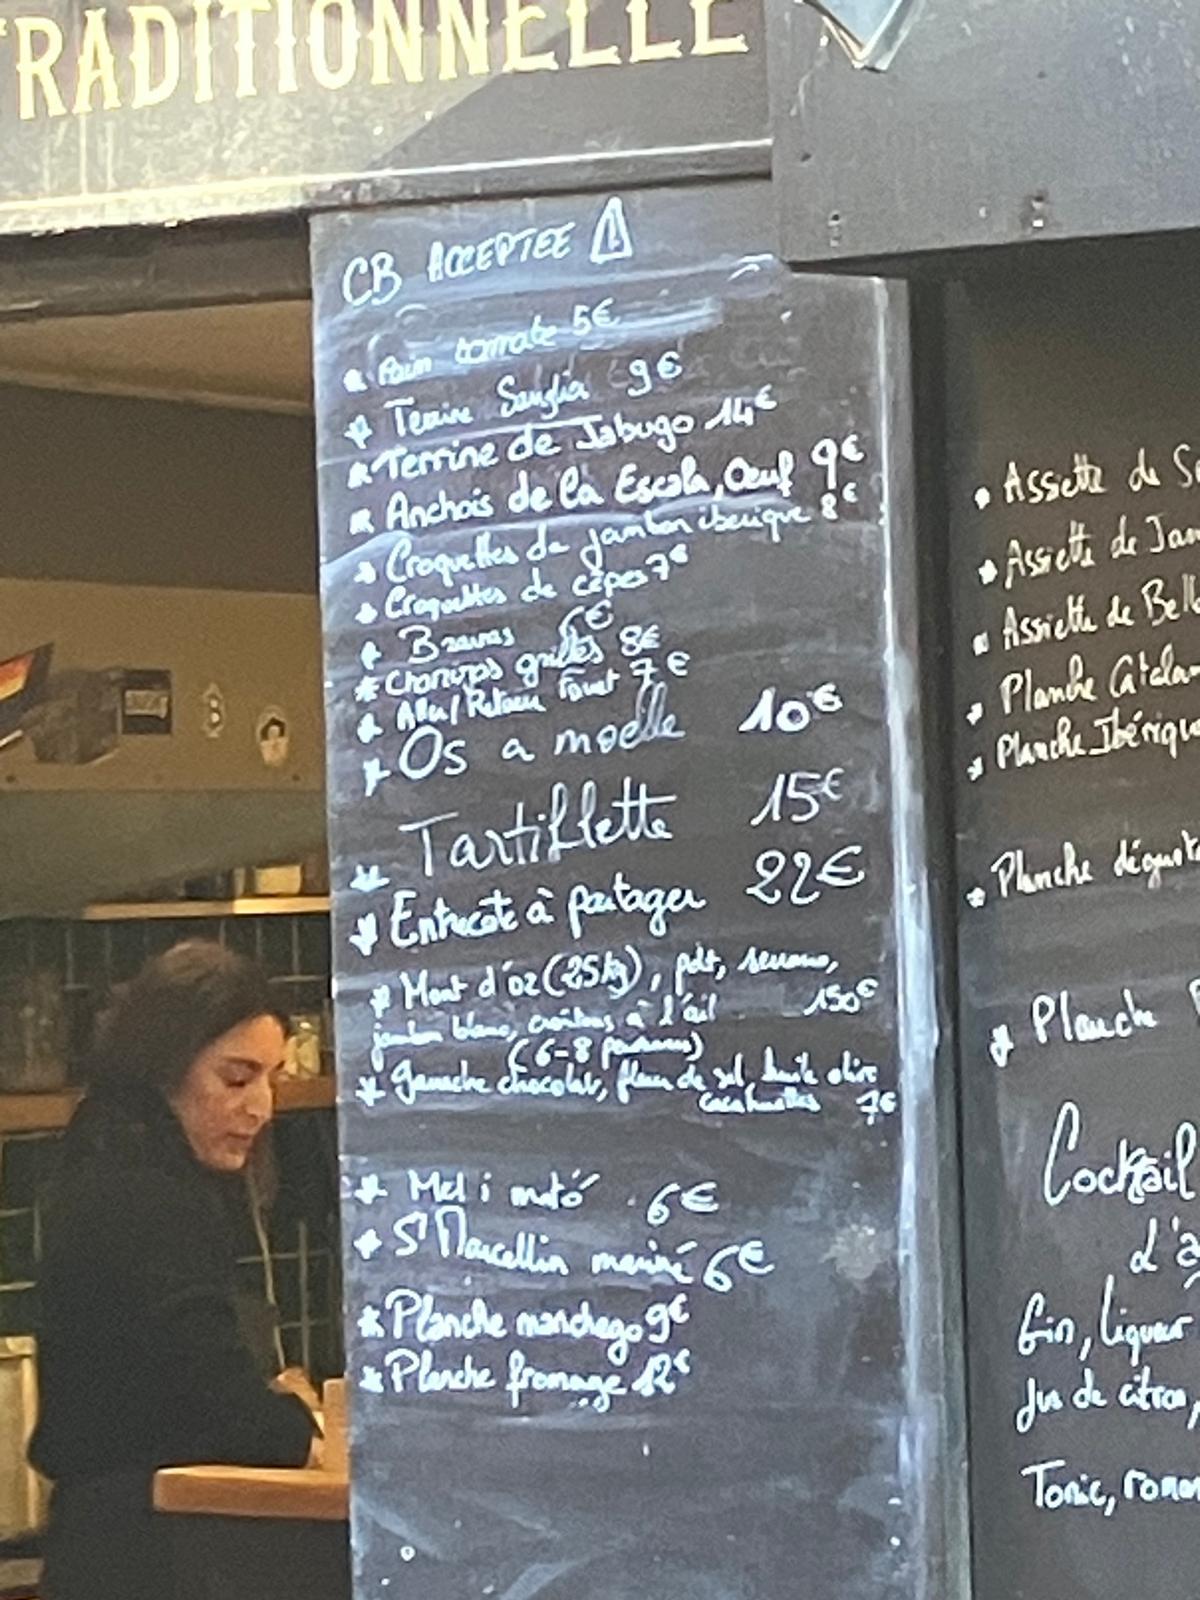 TRADITIONNELLE
CB ACCEPTEE
Pain tomate 5€
Terrine Sanglier 9€
Terrine de Jabugo 14€
Anchois de la Escala, Oeuf 9€
Croquettes de jambon iberique 8€
Croquettes de cèpes 7€
Bravas 6€
grillés 8€
Aller/Retour Fouet 7€
Os a moelle 10€
Tartiflette 15€
Entrecote à partager 22€
Mont d'or (25kg), pdt, serrano,
jambon blanc, croûtons à l'ail 150€
(6-8 personnes)
ganache chocolat, fleur de sel, huile olive
cacahuettes 7€
Mel i mató 6€
St Marcellin mariné 6€
Planche manchego 9€
Planche fromage 12€
Assiette de
Assiette de
Assiette de
Planche
Planche Ibérique
Planche
Planche
Cocktail
Gin, liqueur
Jus de citron,
Tonic,